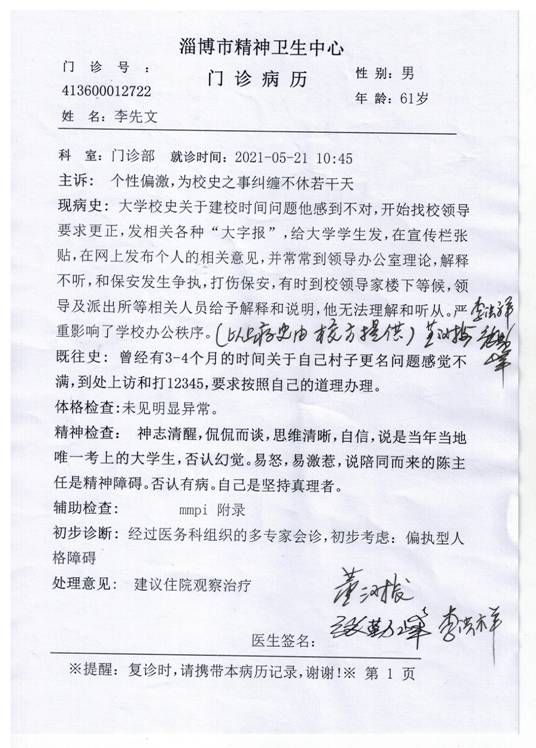 淄博市精神卫生中心
门 诊 号 ：
门 诊 病 历
性 别：男
413600012722
年 龄：61岁
姓 名：李先文
科 室：门诊部 就诊时间：2021-05-21 10:45
主诉： 个性偏激，为校史之事纠缠不休若干天
现病史：大学校史关于建校时间问题他感到不对，开始找校领导
要求更正，发相关各种“大字报”，给大学学生发，在宣传栏张
贴，在网上发布个人的相关意见，并常常到领导办公室理论，解释
不听，和保安发生争执，打伤保安，有时到校领导家楼下等候，领
导及派出所等相关人员给予解释和说明，他无法理解和听从。严
重影响了学校办公秩序。（以上病史由校方提供）
李洪祥
既往史：曾经有3-4个月的时间关于自己村子更名问题感觉不
满，到处上访和打12345，要求按照自己的道理办理。
体格检查：未见明显异常。
精神检查： 神志清醒，侃侃而谈，思维清晰，自信，说是当年当地
唯一考上的大学生，否认幻觉。易怒，易激惹，说陪同而来的陈主
任是精神障碍。否认有病。自己是坚持真理者。
辅助检查： mmpi 附录
初步诊断：经过医务科组织的多专家会诊，初步考虑：偏执型人
格障碍
处理意见： 建议住院观察治疗
李洪祥
医生签名：
※提醒：复诊时，请携带本病历记录，谢谢！※ 第 1 页